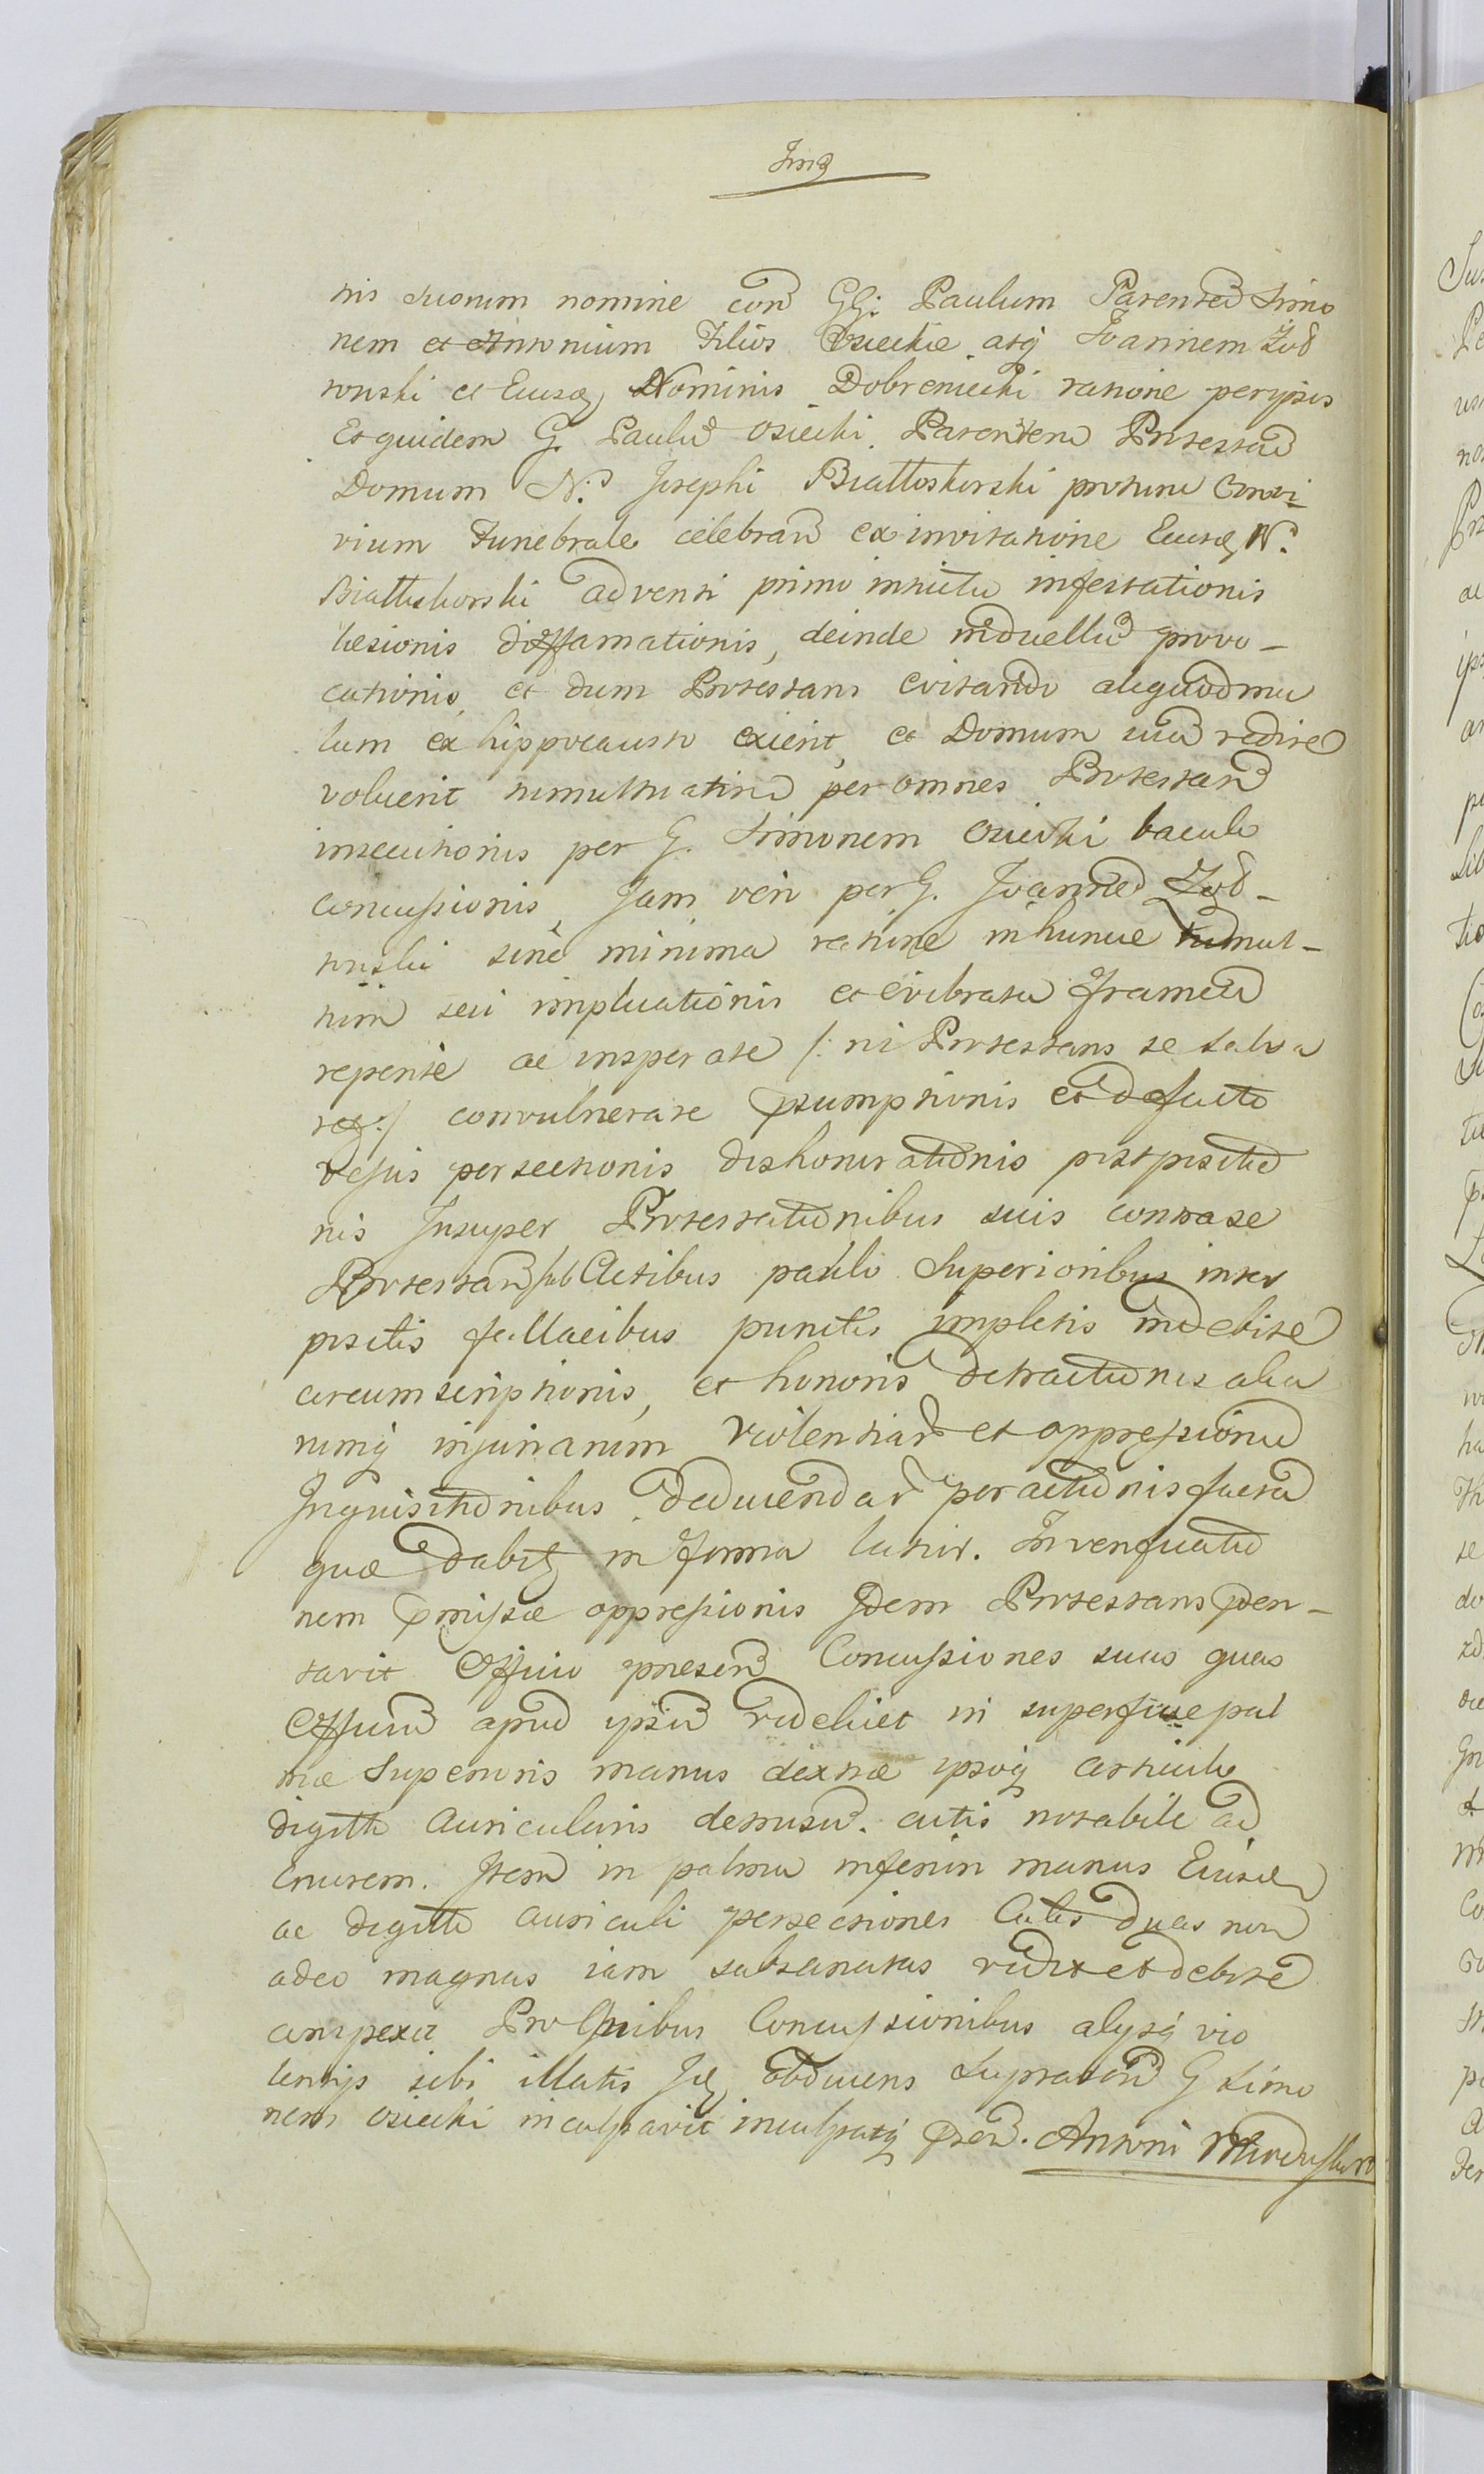 nis suorum nomine con GG: Paulum Parented Simo
nem et Antonium Filios Osieckie atq Joannem Zod
towski et Eiusd Nominis Dobreniecki ratione per ipsos
Et quidem G. Paulu Osiecki Parentem Protestan
Domum N. Josephi Białłoskorski protunc Convi
vium Funebrale celebran ex invitatione Eiusd N.
Białłoskorski adventi primo intuitu infestationis
læsionis diffamationis, deinde induellu provo-
cationis, et dum Protestans evitando aliquod ma
lum ex hippocausto exierit, et Domum sua redire
voluerit tumultuatim per omnes Protestan
insecutionis per G. Simonem Osiecki baculo
concussionis, Jam vero per G. Joanne Zod-
towski sine minima ratione in hunc tumul-
tum seu implicationis et evibrata Framea
repente ac insperate /: ni Protestans se salva
ret :/ convulnerare psumptionis et defacto
persectionis dishonorationis postpositio
nis Insuper Protestationibus suis contra se
Protestan sub Actibus paulo Superioribus inter
positis fallacibus punctis impletis indebite
circumscriptionis, et honoris detractionis alia
rumq injuriarum violentiar et oppressionu
Inquisitionibus deducendar per actionis facta
quæ dabit in forma latior. In
nem pmissæ oppressionis Idem Protestans pden-
tavit Officio præsen Concussiones suas quas
Officiu apud ipsu videlicet in superficie pal
mæ Superioris manus dextræ ipsoq articulo
digitti Auricularis cutis notabile ad
Item in palma inferiori manus Eiusd
ac digitti auriculi persectiones Cutis duas non
adeo magnas iam subsanatas vidit et debite
conspexit Pro Quibus Concussionibus alysq vio
lentijs sibi illatis Id Obducens Supratan G Simo
nem Osiecki inculpavit inculpatq psen. Antoni